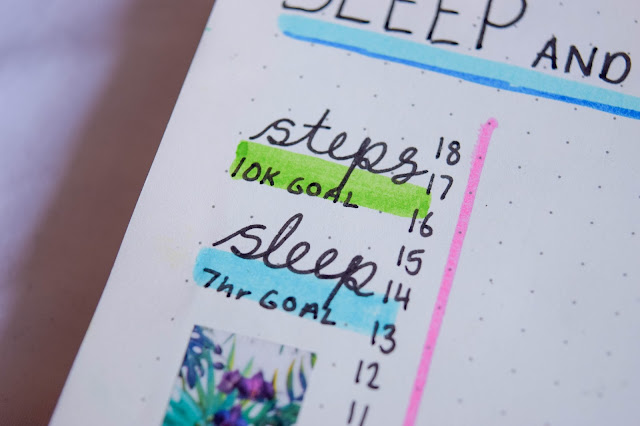 SLEEP AND
steps
10K GOAL
sleep
7hr GOAL
18
17
16
15
14
13
12
11